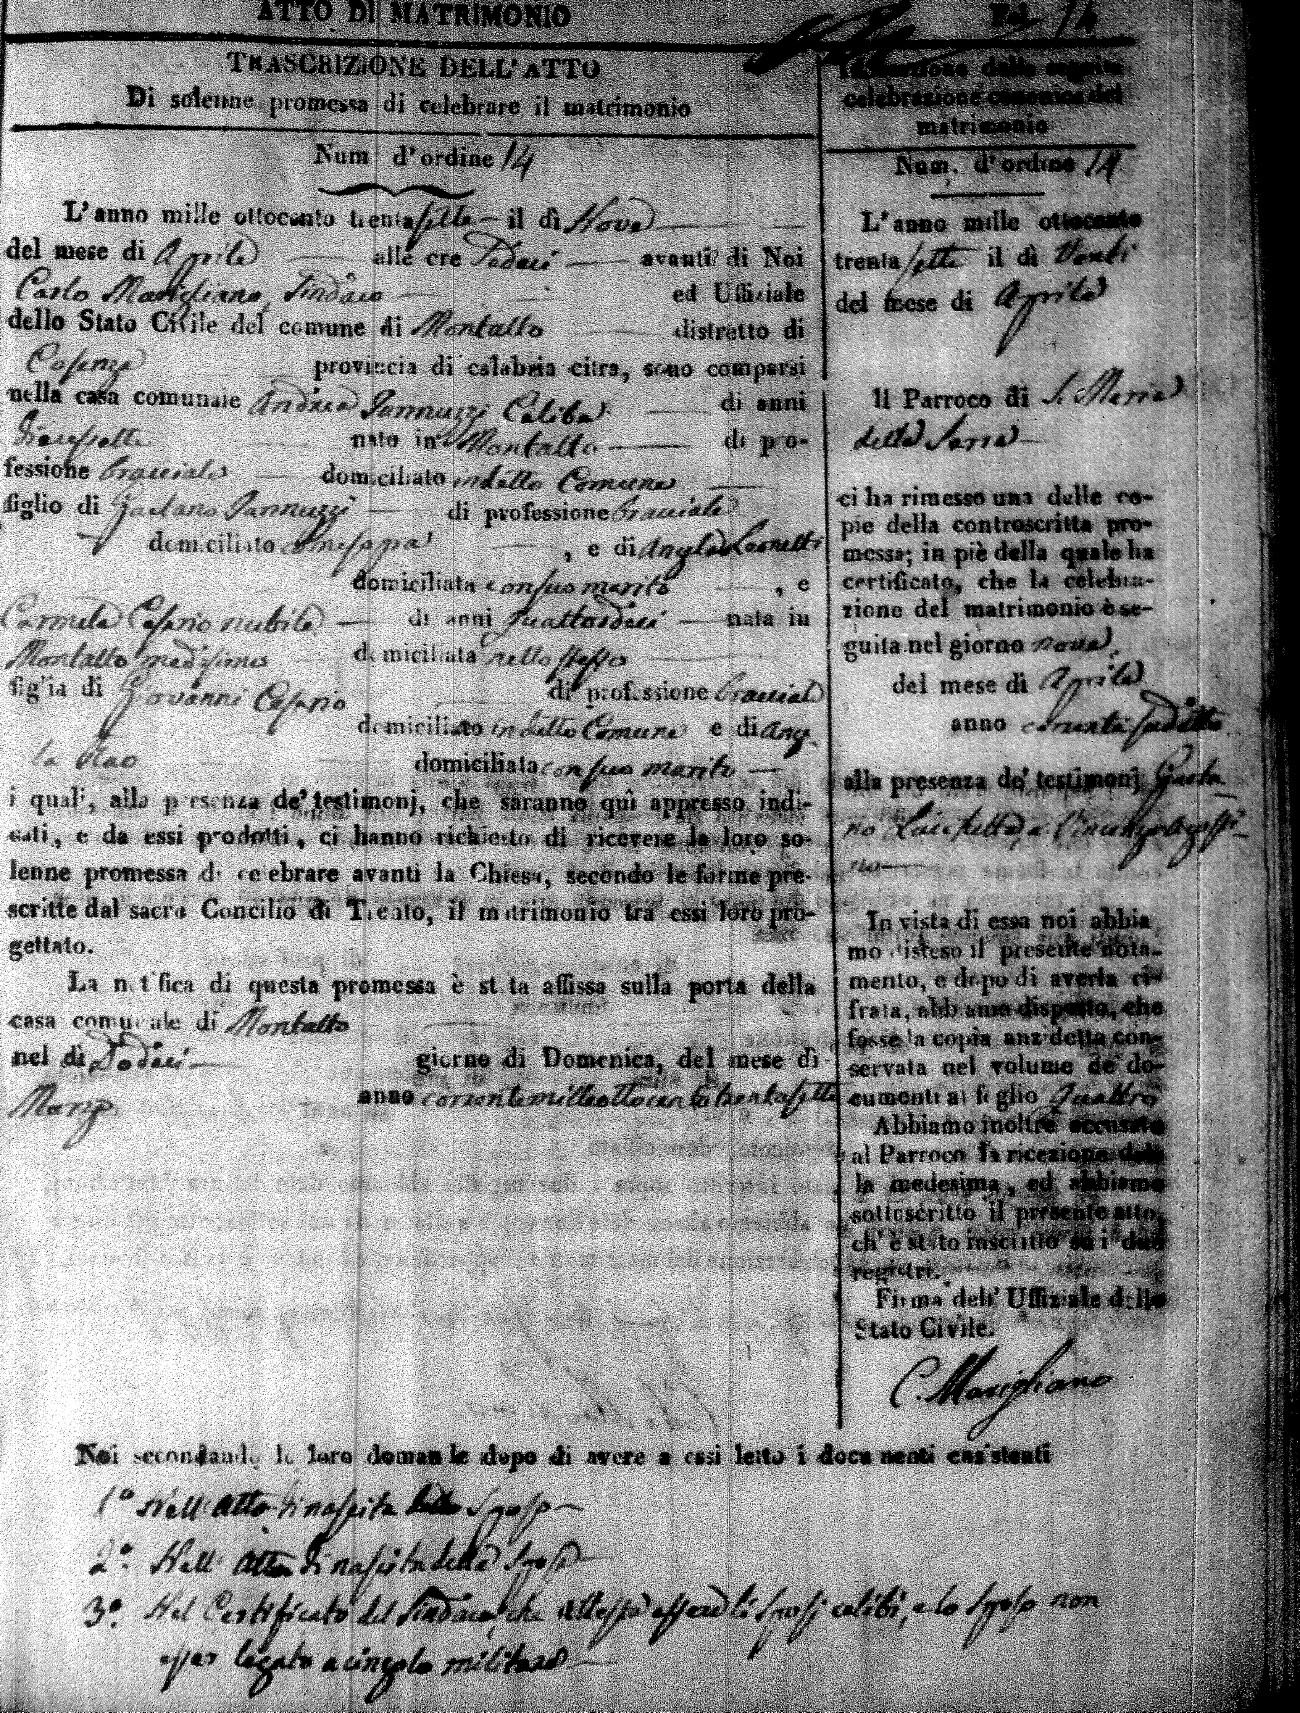 ATTO DI MATRIMONIO
Fol. 14
TRASCRIZIONE DELL' ATTO
Di solenne promessa di celebrare il matrimonio
Num d'ordine 14
L'anno mille ottocento trentasette il dì Nove
del mese di Aprile alle ore Dodeci avanti di Noi
Carlo Marigliano Sindaco ed Uffiziale
dello Stato Civile del comune di Montalto distretto di
Cosenza provincia di calabria citra, sono comparsi
nella casa comunale Andrea Iannuzzi Celibe di anni
nato in Montalto di pro-
fessione bracciale domiciliato in detto Comune
figlio di Gaetano Iannuzzi di professione bracciale
domiciliato come sopra, e di Angela
domiciliata con suo marito, e
Carmela Cesario nubile di anni quattordeci nata in
Montalto medesimo domiciliata nello stesso
figlia di Giovanni Cesario di professione bracciale
domiciliato in detto Comune e di Ang
la Rao domiciliata con suo marito
i quali, alla presenza de' testimonj, che saranno quì appresso indi-
cati, e da essi prodotti, ci hanno richiesto di ricevere la loro so-
lenne promessa di celebrare avanti la Chiesa, secondo le forme pre-
scritte dal sacro Concilio di Trento, il matrimonio tra essi loro pro-
gettato.
La notifica di questa promessa è stata affissa sulla porta della
casa comunale di Montalto
nel dì Dodeci giorno di Domenica, del mese di
Marzo anno corrente milleottocento trentasette
della seguita
celebrazione canonica del
matrimonio
Num. d'ordine 14
L'anno mille ottocento
trentasette il dì Venti
del mese di Aprile
Il Parroco di S. Maria
della Serra
ci ha rimesso una delle co-
pie della controscritta pro-
messa; in piè della quale ha
certificato, che la celebra-
zione del matrimonio è se-
guita nel giorno nove
del mese di Aprile
anno corrente sudetto
alla presenza de' testimonj Gaeta-
no
In vista di essa noi abbia
mo disteso il presente nota-
mento, e dopo di averla ci-
frata, abbiamo disposto, che
fosse la copia anzidetta con-
servata nel volume de' do-
cumenti al foglio Quattro
Abbiamo inoltre accusato
al Parroco la ricezione del-
la medesima, ed abbiamo
sottoscritto il presente atto,
ch' è stato inscritto su i due
registri.
Firma dell' Uffiziale dello
Stato Civile.
C. Marigliano
Noi secondando le loro domande dopo di avere a essi letto i documenti consistenti
1.° Nell' atto di nascita dello Sposo
2.° Nell' atto di nascita della Sposa
3.° Nel Certificato del Sindaco, che attesta essere li Sposi celibi, e lo Sposo non
esser legato a cingolo militare